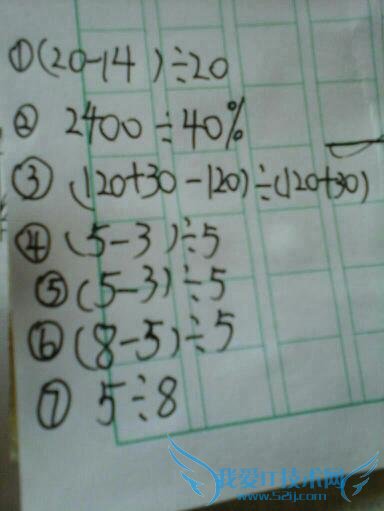 ①(20-14)÷20
② 2400÷40%
③ (120+30-120)÷(120+30)
④ (5-3)÷5
⑤ (5-3)÷5
⑥ (8-5)÷5
⑦ 5÷8
我爱IT技术网
www.52ij.com